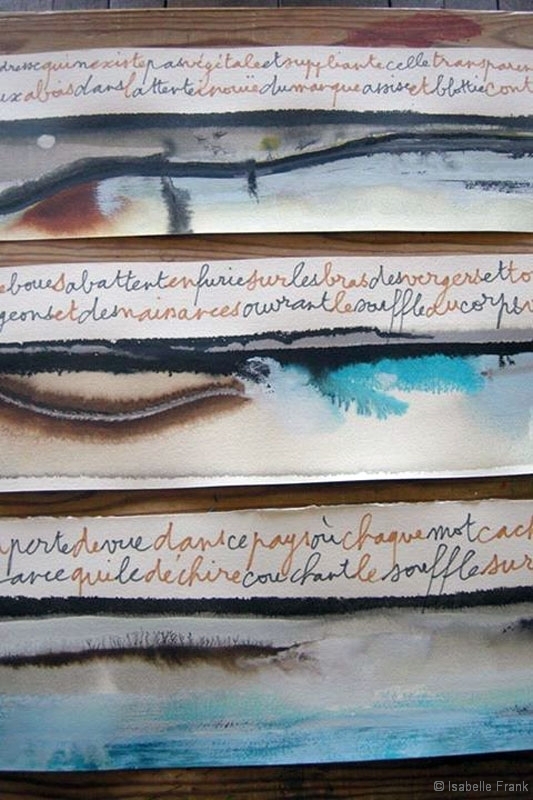 dressequin'existepasvégétaleetsuppliantecelletransparen
uxaboisdansl'attenteinouïedumarqueassiseetblottiecont
ebouesabattentenfuriesurlesbrasdesvergersetto
geonsetdesmainancesouvrantlesouffleducorps
pertedevuedanscepaysoùchaquemotcach
ancequiledéchirecouchantlesouffle sur
© Isabelle Frank